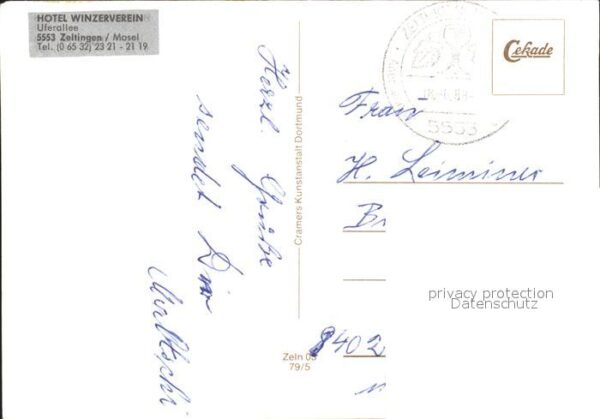 HOTEL WINZERVEREIN
Uferallee
5553 Zeltingen / Mosel
Tel. (0 65 32) 23 21 - 21 19
Herzl. Grüße
sendet Dir
Cramers Kunstanstalt Dortmund
Zeln 03
79/5
Cekade
5553
Frau
H.
privacy protection
Datenschutz
8402